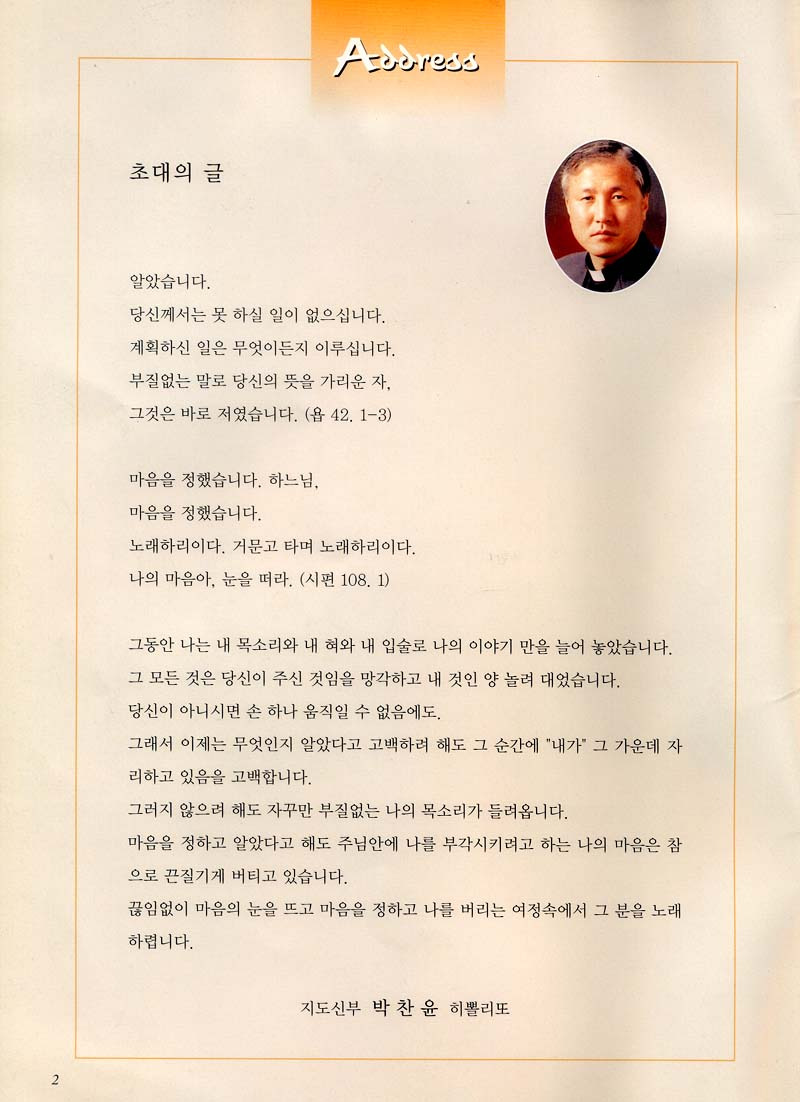 Address
초대의 글
알았습니다.
당신께서는 못 하실 일이 없으십니다.
계획하신 일은 무엇이든지 이루십니다.
부질없는 말로 당신의 뜻을 가리운 자,
그것은 바로 저였습니다. (욥 42. 1-3)
마음을 정했습니다. 하느님,
마음을 정했습니다.
노래하리이다. 거문고 타며 노래하리이다.
나의 마음아, 눈을 떠라. (시편 108. 1)
그동안 나는 내 목소리와 내 혀와 내 입술로 나의 이야기 만을 늘어 놓았습니다.
그 모든 것은 당신이 주신 것임을 망각하고 내 것인 양 놀려 대었습니다.
당신이 아니시면 손 하나 움직일 수 없음에도.
그래서 이제는 무엇인지 알았다고 고백하려 해도 그 순간에 "내가" 그 가운데 자
리하고 있음을 고백합니다.
그러지 않으려 해도 자꾸만 부질없는 나의 목소리가 들려옵니다.
마음을 정하고 알았다고 해도 주님안에 나를 부각시키려고 하는 나의 마음은 참
으로 끈질기게 버티고 있습니다.
끊임없이 마음의 눈을 뜨고 마음을 정하고 나를 버리는 여정속에서 그 분을 노래
하렵니다.
지도신부 박찬윤 히뽈리또
2